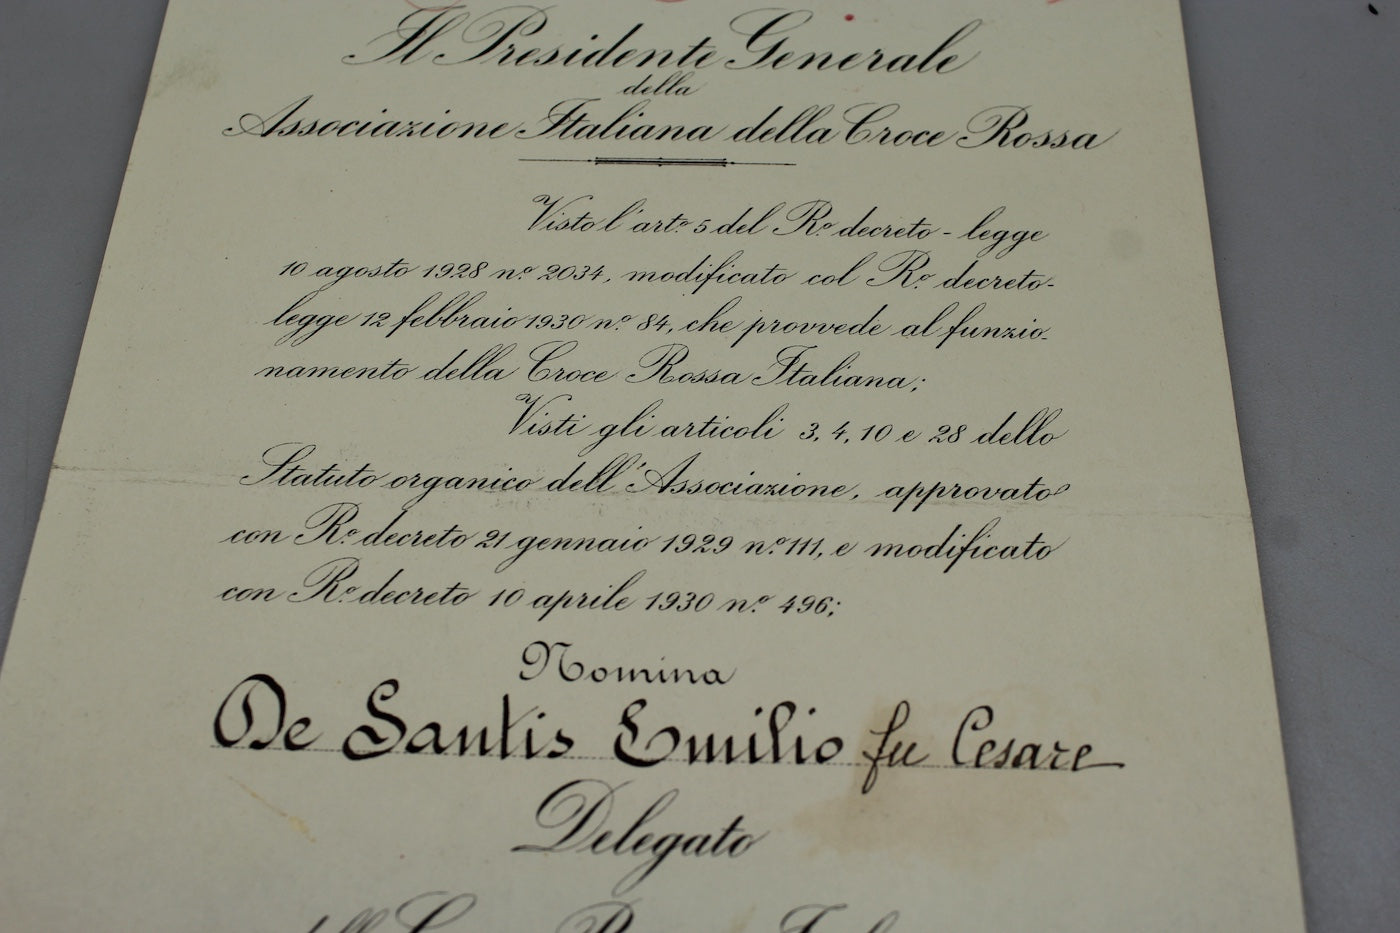 Il Presidente Generale
della
Associazione Italiana della Croce Rossa
Visto l'arto. 5 del Ro. decreto-legge
10 agosto 1928 no. 2034, modificato col Ro. decreto-
legge 12 febbraio 1930 no. 84, che provvede al funzio-
namento della Croce Rossa Italiana;
Visti gli articoli 3, 4, 10 e 28 dello
Statuto organico dell'Associazione, approvato
con Ro. decreto 21 gennaio 1929 no. 111, e modificato
con Ro. decreto 10 aprile 1930 no. 496;
Nomina
De Santis Emilio fu Cesare
Delegato